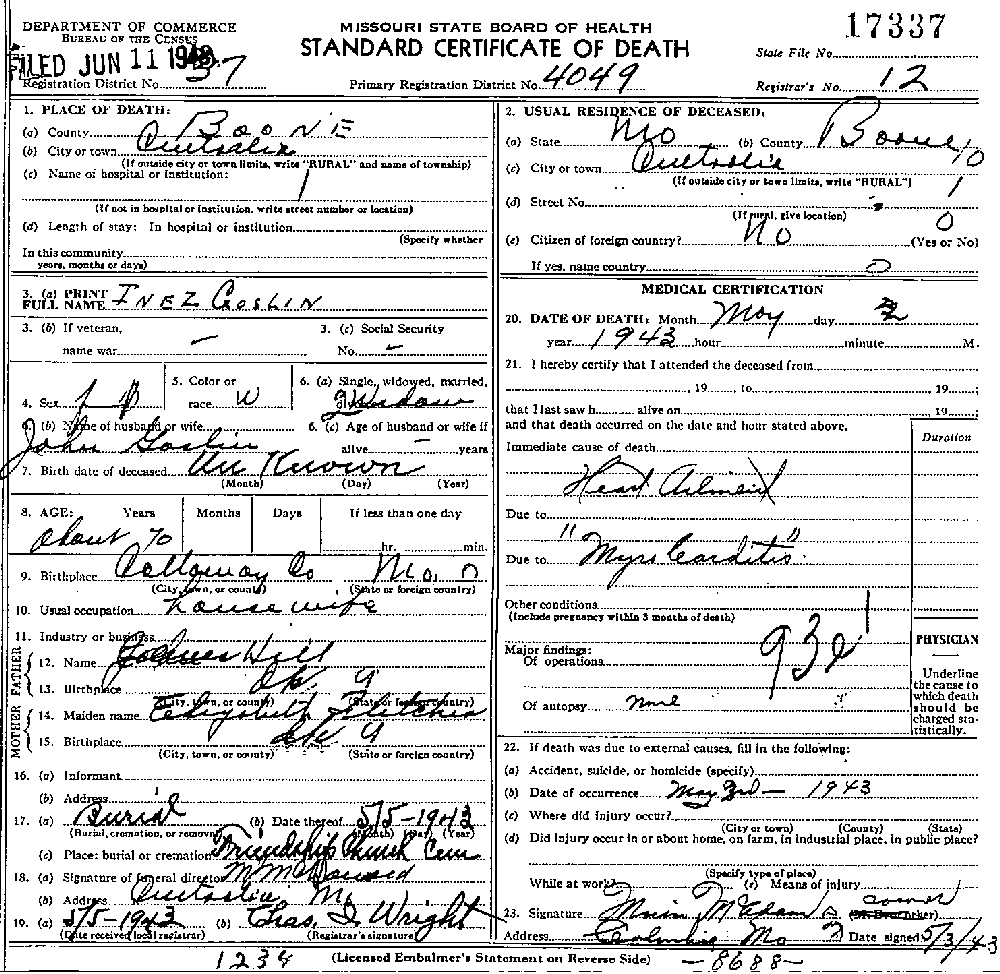 DEPARTMENT OF COMMERCE
BUREAU OF THE CENSUS
MISSOURI STATE BOARD OF HEALTH
STANDARD CERTIFICATE OF DEATH
17337
State File No.
FILED JUN 11 1943
Registration District No. 37
Primary Registration District No. 4049
Registrar's No. 12
1. PLACE OF DEATH:
(a) County BOONE
(b) City or town
(If outside city or town limits, write "RURAL" and name of township)
(c) Name of hospital or institution:
1
(If not in hospital or institution, write street number or location)
(d) Length of stay: In hospital or institution
(Specify whether
In this community
years, months or days)
3. (a) PRINT FULL NAME INEZ GOSLIN
3. (b) If veteran, name war –
3. (c) Social Security No. –
4. Sex F
5. Color or race W
6. (a) Single, widowed, married, Widow
6. (b) Name of husband or wife John Goslin
6. (c) Age of husband or wife if alive – years
7. Birth date of deceased Un Known
(Month) (Day) (Year)
8. AGE: Years Months Days If less than one day
about 70 hr. min.
9. Birthplace Callaway Co Mo. 0
(City, town, or county) (State or foreign country)
10. Usual occupation house wife
11. Industry or business
12. Name Hill
13. Birthplace dk 9
(City, town, or county) (State or foreign country)
14. Maiden name Elizabeth Fletcher
15. Birthplace dk 9
(City, town, or county) (State or foreign country)
FATHER
MOTHER
16. (a) Informant
(b) Address
17. (a) Burial (b) Date thereof 5/5-1943
(Burial, cremation, or removal) (Month) (Day) (Year)
(c) Place: burial or cremation Friendship Church Cem
18. (a) Signature of funeral director
(b) Address Mo.
19. (a) 5/5-1943 (b) Chas. Wright
(Date received local registrar) (Registrar's signature)
2. USUAL RESIDENCE OF DECEASED:
(a) State Mo (b) County Boone 10
(c) City or town
(If outside city or town limits, write "RURAL") 1
(d) Street No.
(If rural, give location) 0
(e) Citizen of foreign country? No (Yes or No)
If yes, name country 0
MEDICAL CERTIFICATION
20. DATE OF DEATH: Month May day
year 1943 hour minute M.
21. I hereby certify that I attended the deceased from
, 19 , to , 19 ;
that I last saw h alive on , 19 ;
and that death occurred on the date and hour stated above.
Duration
Immediate cause of death
Heart Ailment
Due to
Due to "Myocarditis"
Other conditions
(Include pregnancy within 3 months of death)
Major findings:
Of operations
93e 1
Of autopsy none
PHYSICIAN
Underline the cause to which death should be charged statistically.
22. If death was due to external causes, fill in the following:
(a) Accident, suicide, or homicide (specify)
(b) Date of occurrence May 3rd – 1943
(c) Where did injury occur?
(City or town) (County) (State)
(d) Did injury occur in or about home, on farm, in industrial place, in public place?
(Specify type of place)
While at work? (e) Means of injury
23. Signature coroner
Address Columbia Mo Date signed 5/3/43
(Licensed Embalmer's Statement on Reverse Side)
1234
-8688-